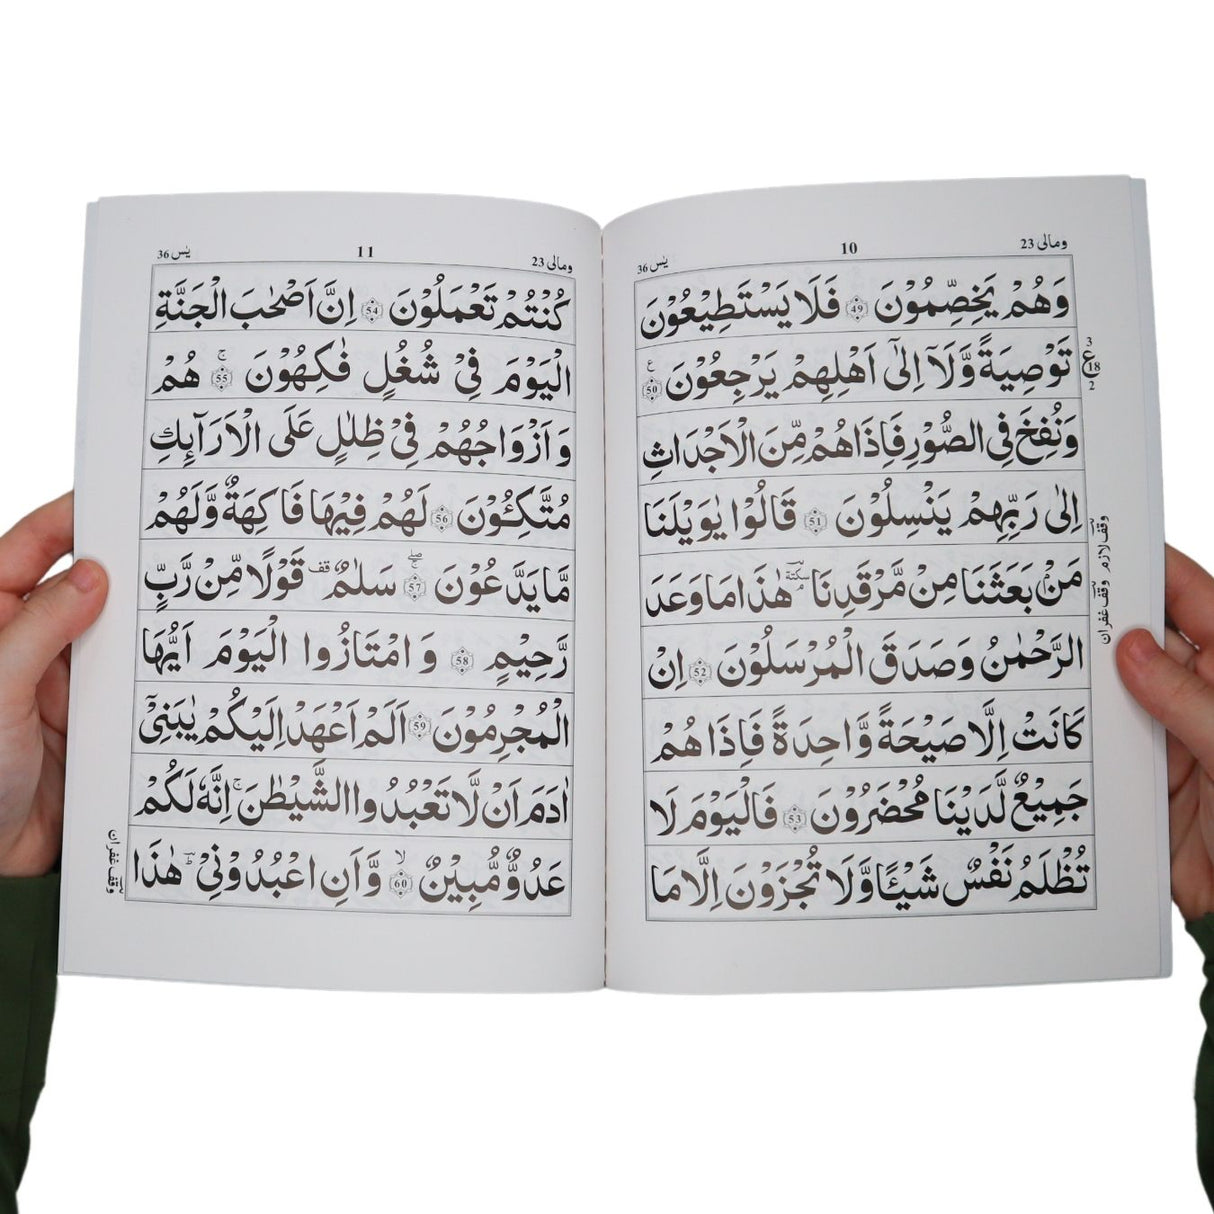 ومالی 23
10
یٰس 36
وَهُمْ يَخِصِّمُوْنَ ﴿49﴾ فَلَا يَسْتَطِيْعُوْنَ
تَوْصِيَةً وَّلَآ اِلٰٓى اَهْلِهِمْ يَرْجِعُوْنَ ﴿50﴾ ع
وَنُفِخَ فِى الصُّوْرِ فَاِذَا هُمْ مِّنَ الْاَجْدَاثِ
اِلٰى رَبِّهِمْ يَنْسِلُوْنَ ﴿51﴾ قَالُوْا يٰوَيْلَنَا
مَنْۢ بَعَثَنَا مِنْ مَّرْقَدِنَا سكتة هٰذَا مَا وَعَدَ
الرَّحْمٰنُ وَصَدَقَ الْمُرْسَلُوْنَ ﴿52﴾ اِنْ
كَانَتْ اِلَّا صَيْحَةً وَّاحِدَةً فَاِذَا هُمْ
جَمِيْعٌ لَّدَيْنَا مُحْضَرُوْنَ ﴿53﴾ فَالْيَوْمَ لَا
تُظْلَمُ نَفْسٌ شَيْئًا وَّلَا تُجْزَوْنَ اِلَّا مَا
3
ع
18
2
وقف لازم وقف غفران
ومالی 23
11
یٰس 36
كُنْتُمْ تَعْمَلُوْنَ ﴿54﴾ اِنَّ اَصْحٰبَ الْجَنَّةِ
الْيَوْمَ فِىْ شُغُلٍ فٰكِهُوْنَ ﴿55﴾ ج هُمْ
وَاَزْوَاجُهُمْ فِىْ ظِلٰلٍ عَلَى الْاَرَآئِكِ
مُتَّكِـُٔوْنَ ﴿56﴾ لَهُمْ فِيْهَا فَاكِهَةٌ وَّلَهُمْ
مَّا يَدَّعُوْنَ ﴿57﴾ صلے ج سَلٰمٌ قف قَوْلًا مِّنْ رَّبٍّ
رَّحِيْمٍ ﴿58﴾ وَامْتَازُوا الْيَوْمَ اَيُّهَا
الْمُجْرِمُوْنَ ﴿59﴾ اَلَمْ اَعْهَدْ اِلَيْكُمْ يٰبَنِىْٓ
اٰدَمَ اَنْ لَّا تَعْبُدُوا الشَّيْطٰنَ ج اِنَّهٗ لَكُمْ
عَدُوٌّ مُّبِيْنٌ ﴿60﴾ لا وَّاَنِ اعْبُدُوْنِىْ ط هٰذَا
وقف غفران